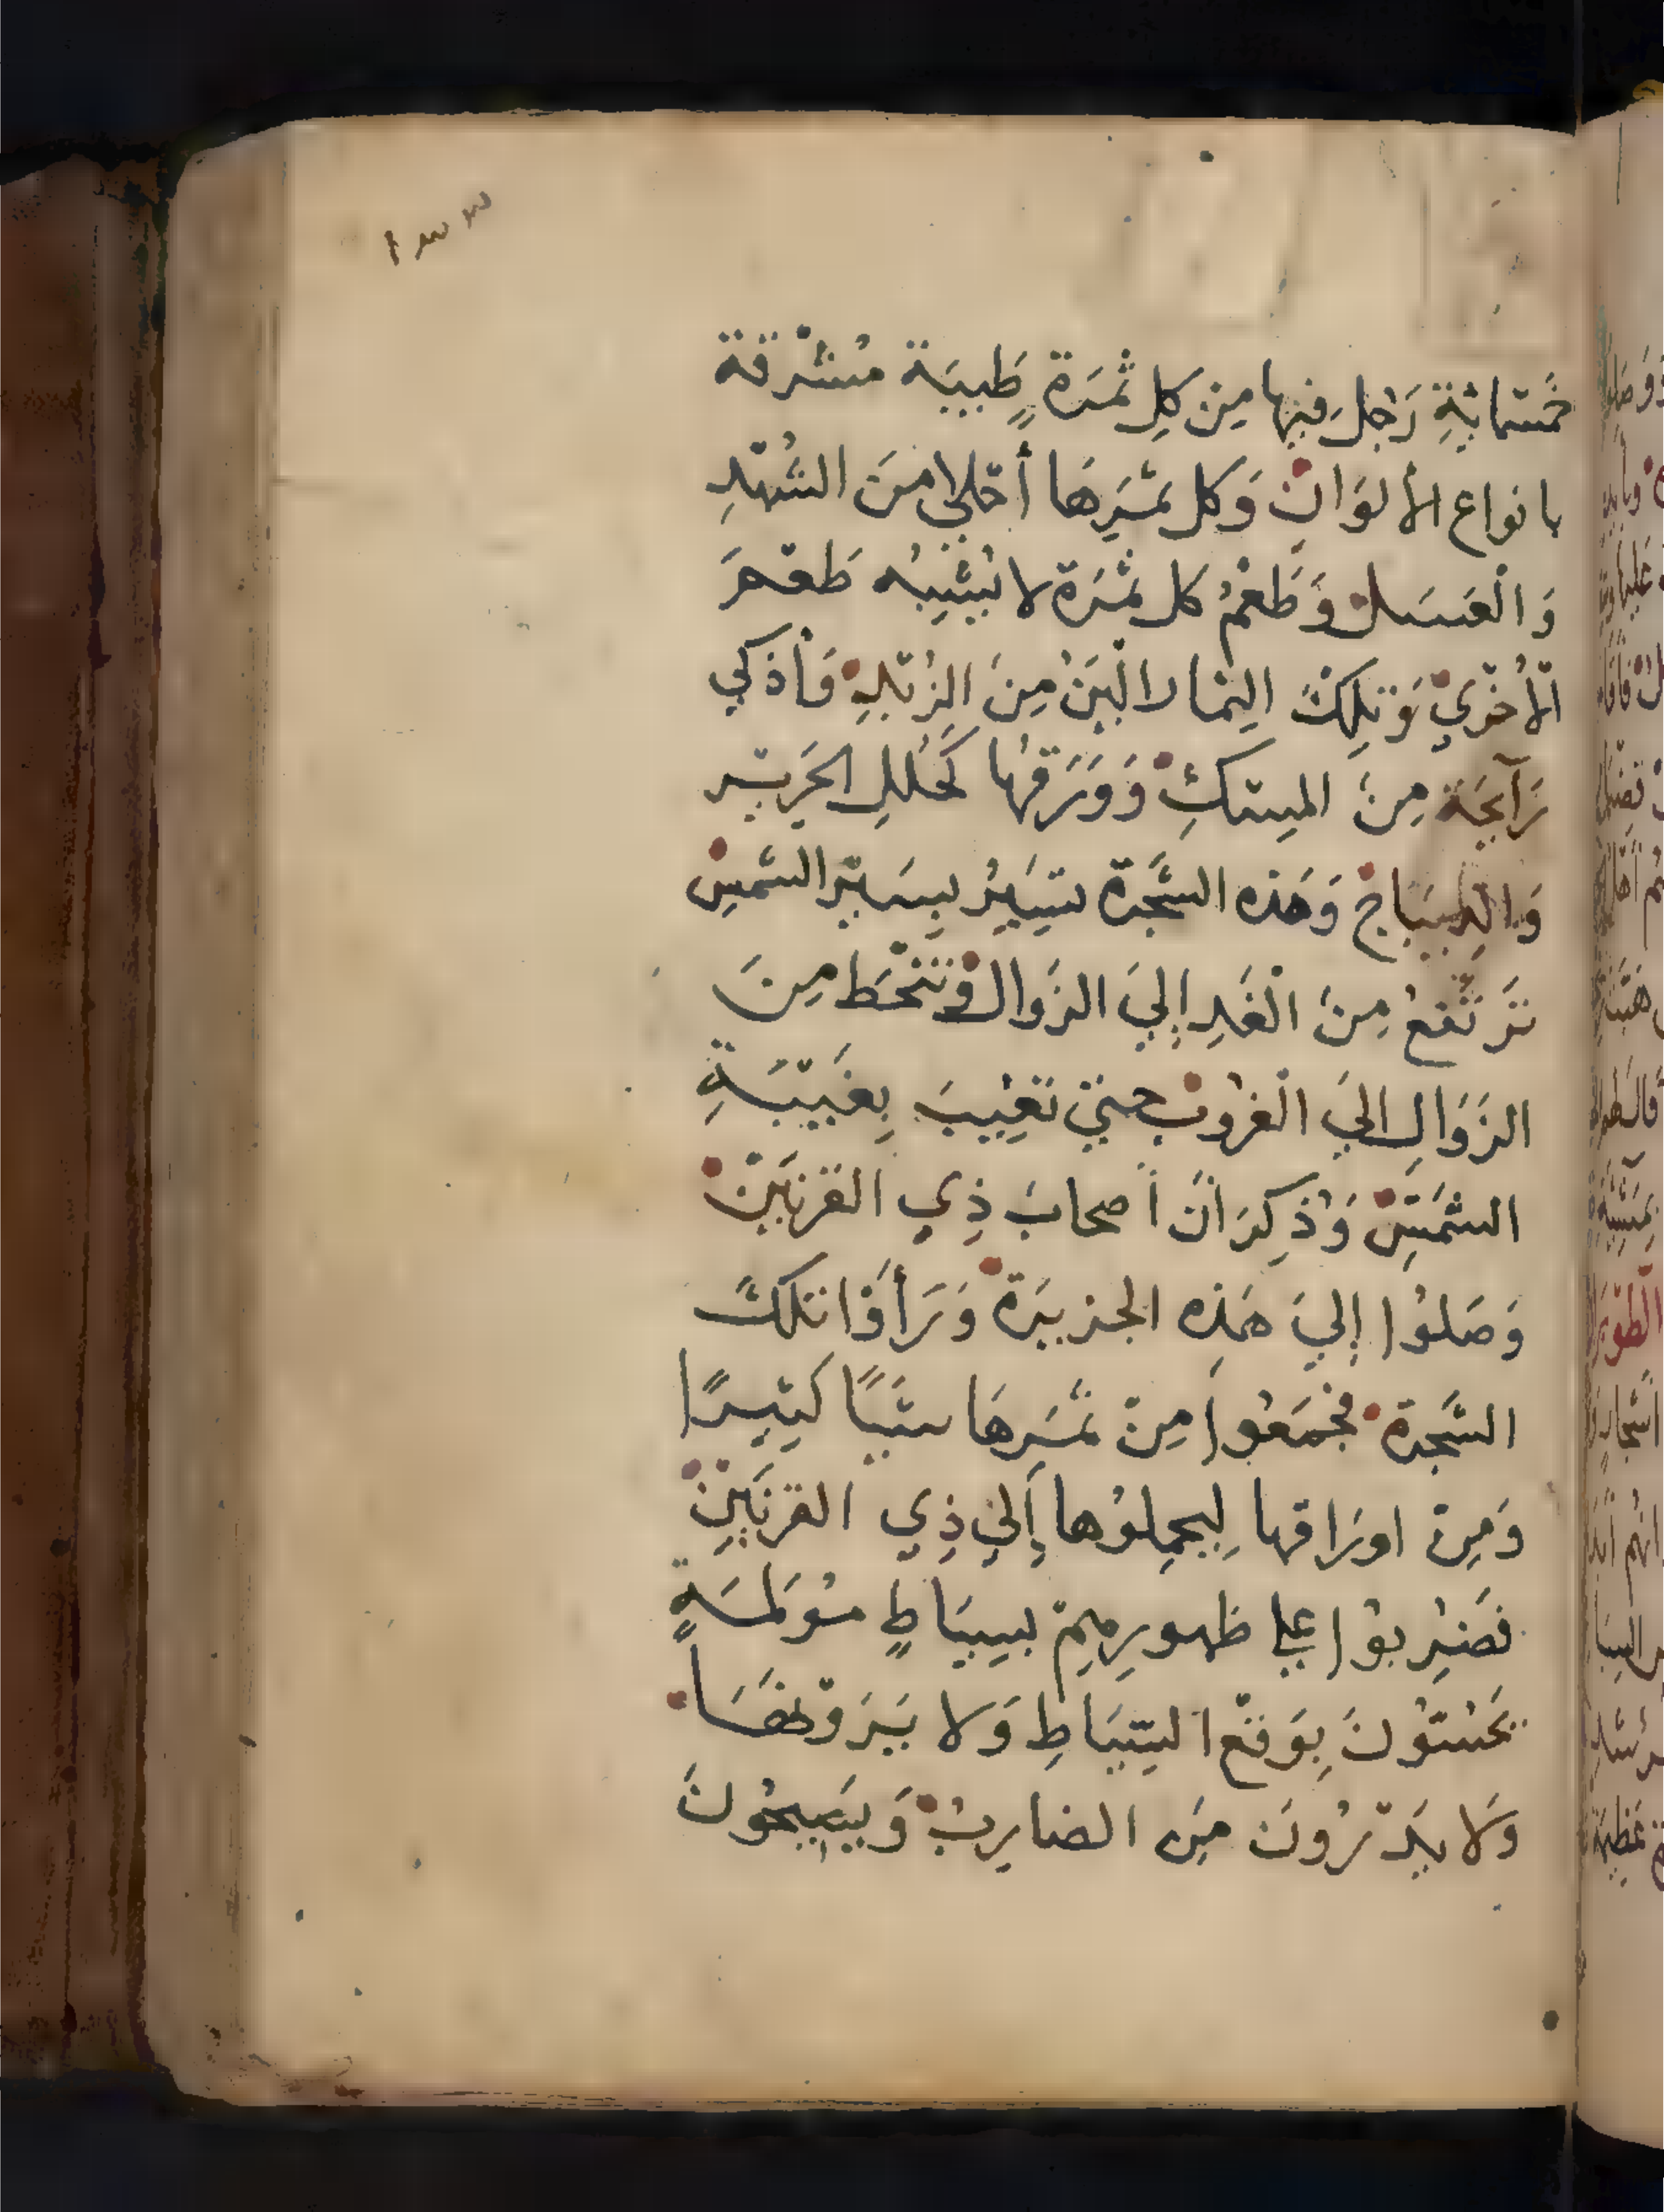 ١٣٣
خَمْسَمائِةِ رَجُل فيها مِن كلِ ثَمَرَةٍ طَيبَة مُشْرِقة
بانواع الألوَانْ وَكل ثمَرِهَا أحْلي منَ الشُهْدِ
وَالْعَسَلْ وَطَعْمُ كل ثمَرَة لا يُشْبِهُ طَعْمَ
الأُخْرَيْ وَتِلكَ الثِمَار الْيَنُ مِنَ الزُبْدِ وَأذكي
رَآيِحَة مِنَ المِسْكِ وَوَرَقُها كَحُلَلِ الحَرِير
وَالدِيبَاجْ وَهَذه الشَجَرة تَسِيرُ بِسَيْرِ الشَمْسْ
تَرْتَفِعُ مِنَ الْغَدِ إليَ الزَوالْ وَتَنْحَط مِنَ
الزَوَالِ اليَ الْغُرُوبْ حتيّ تَغِيبَ بِغَيْبَةِ
الشَمْسْ وَذُكِرَ انَّ اصحابَ ذِي القَرْنَيْنْ
وَصَلُوا إليَ هَذِه الجزيرَة وَرَأَوْا تلكَ
الشَجَرة فجَمَعُوا مِنْ ثمَرِهَا شَيًا كَثِيرًا
وَمِنْ اورَاقها لِيحمِلوُها إليَ ذِي القَرْنَيْنْ
فَضُرِبُوْا علي ظهورِهِمْ بسِيَاطٍ مُوْلمَةٍ
يحُسُّوْنَ بِوَقْعِ السِيَاطِ وَلا يَرَوْنهَا
وَلا يَدْرُونَ مَنِ الضارِبُ وَيَصِيحُونَ